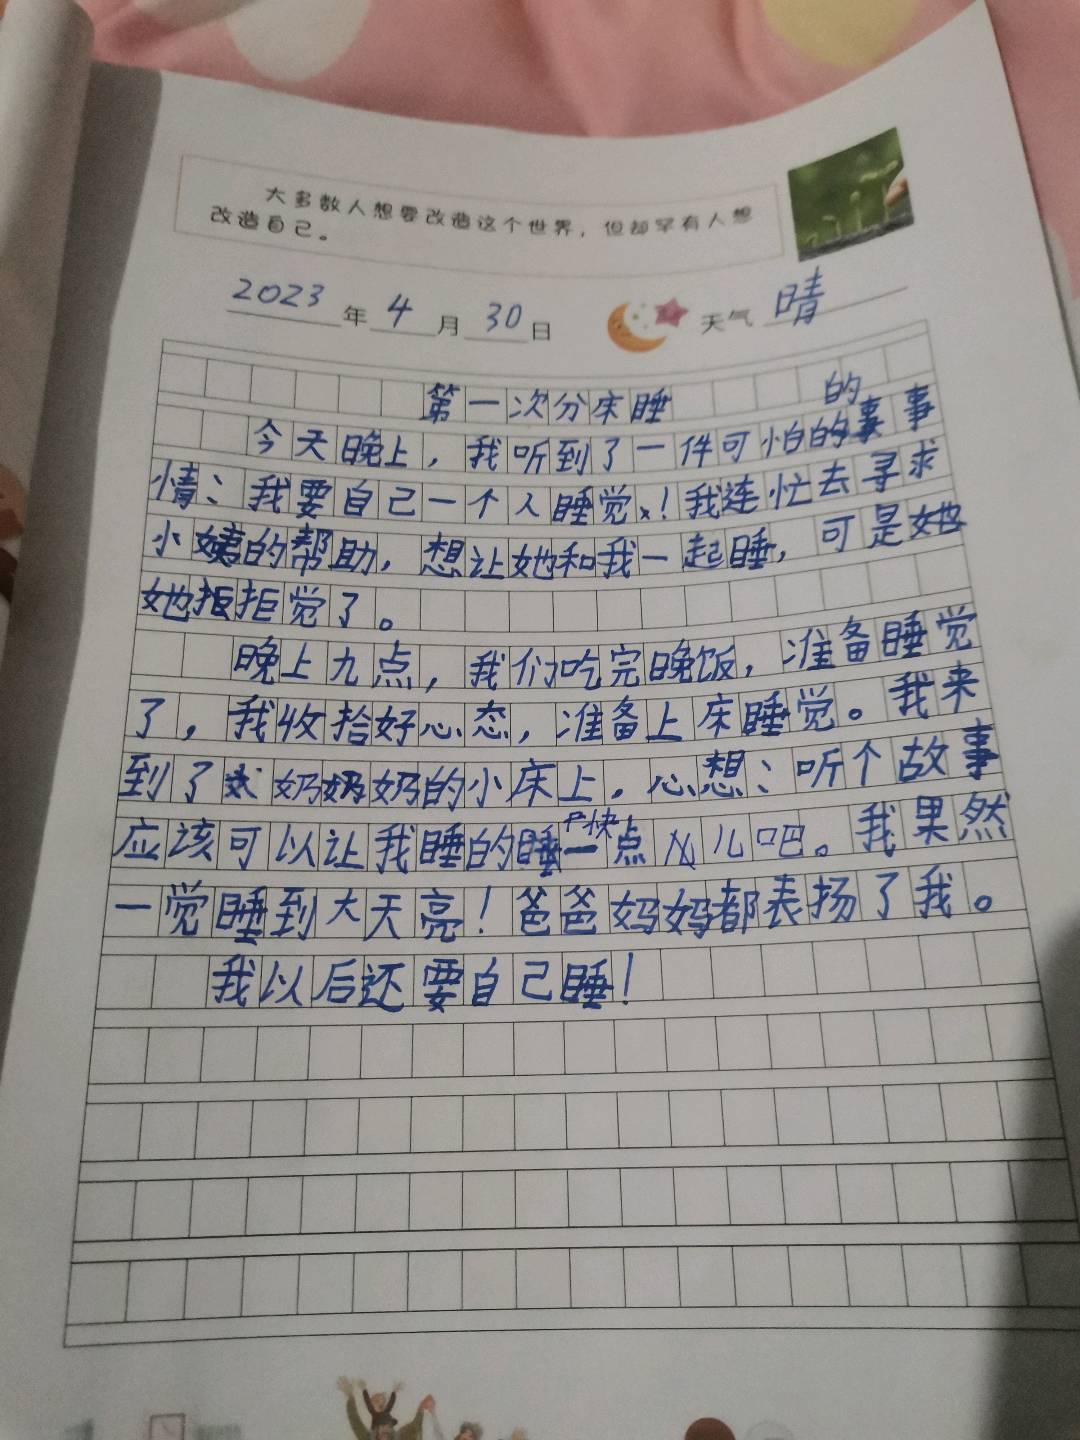 大多数人想要改造这个世界，但却罕有人想
改造自己。
2023年4月30日 天气 晴
第一次分床睡
今天晚上，我听到了一件可怕的事
情：我要自己一个人睡觉！我连忙去寻求
小姨的帮助，想让她和我一起睡，可是她
她拒拒觉了。
晚上九点，我们吃完晚饭，准备睡觉
了，我收拾好心态，准备上床睡觉。我来
到了奶奶的小床上，心想：听个故事
应该可以让我睡的快一点儿吧。我果然
一觉睡到大天亮！爸爸妈妈都表扬了我。
我以后还要自己睡！